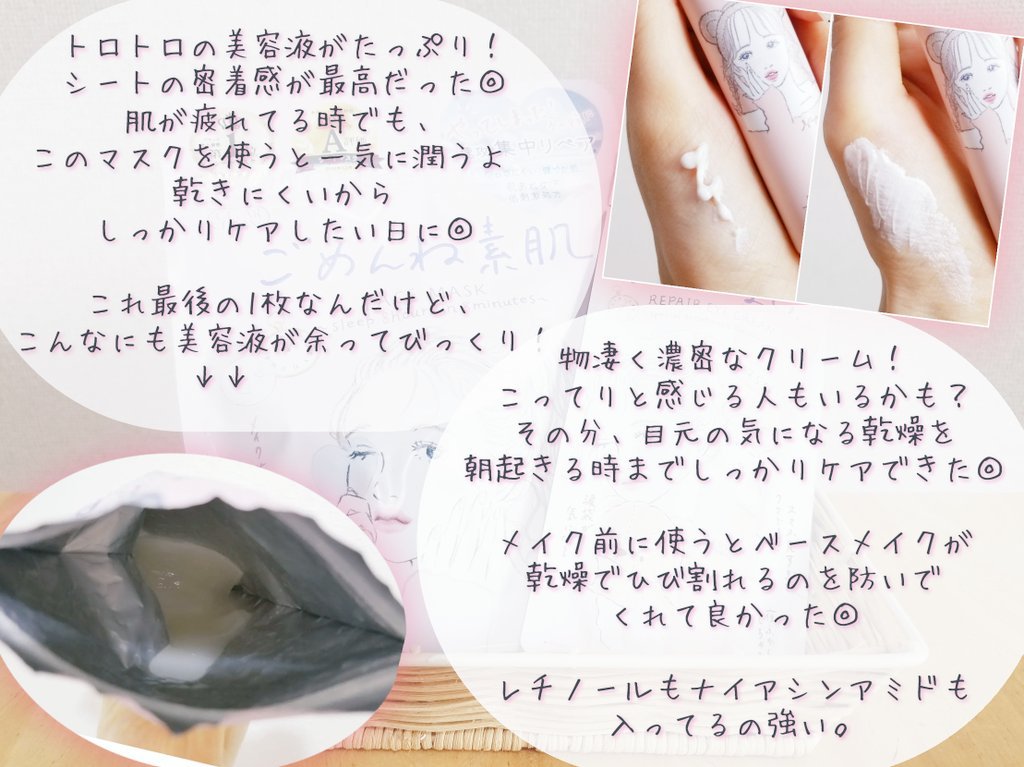 トロトロの美容液がたっぷり！
シートの密着感が最高だった◎
肌が疲れてる時でも、
このマスクを使うと一気に潤うよ
乾きにくいから
しっかりケアしたい日に◎
これ最後の1枚なんだけど、
こんなにも美容液が余ってびっくり！
↓↓
集中リペア
ごめんね素肌
MASK
REPAIR
物凄く濃密なクリーム！
こってりと感じる人もいるかも？
その分、目元の気になる乾燥を
朝起きる時までしっかりケアできた◎
メイク前に使うとベースメイクが
乾燥でひび割れるのを防いで
くれて良かった◎
レチノールもナイアシンアミドも
入ってるの強い。